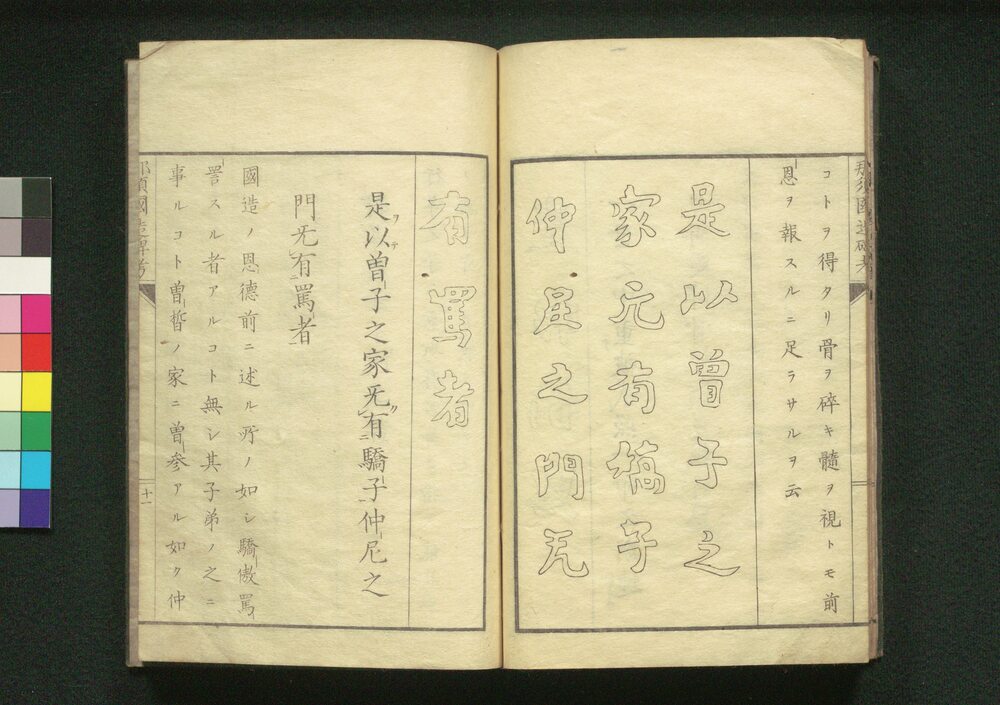 那須國造碑考
コトヲ得タリ骨ヲ碎キ髓ヲ視トモ前
恩ヲ報スルニ足ラサルヲ云
是以曽子之
家无有嬌子
仲尼之門无
有罵者
是ヲ以テ曽子之家旡有リ驕子仲尼之
門旡有罵者
國造ノ恩德前ニ述ル所ノ如シ驕傲罵
詈スル者アルコト無シ其子弟ノ之ニ
事ルコト曽晳ノ家ニ曽参アル如ク仲
那須國造碑考
十一